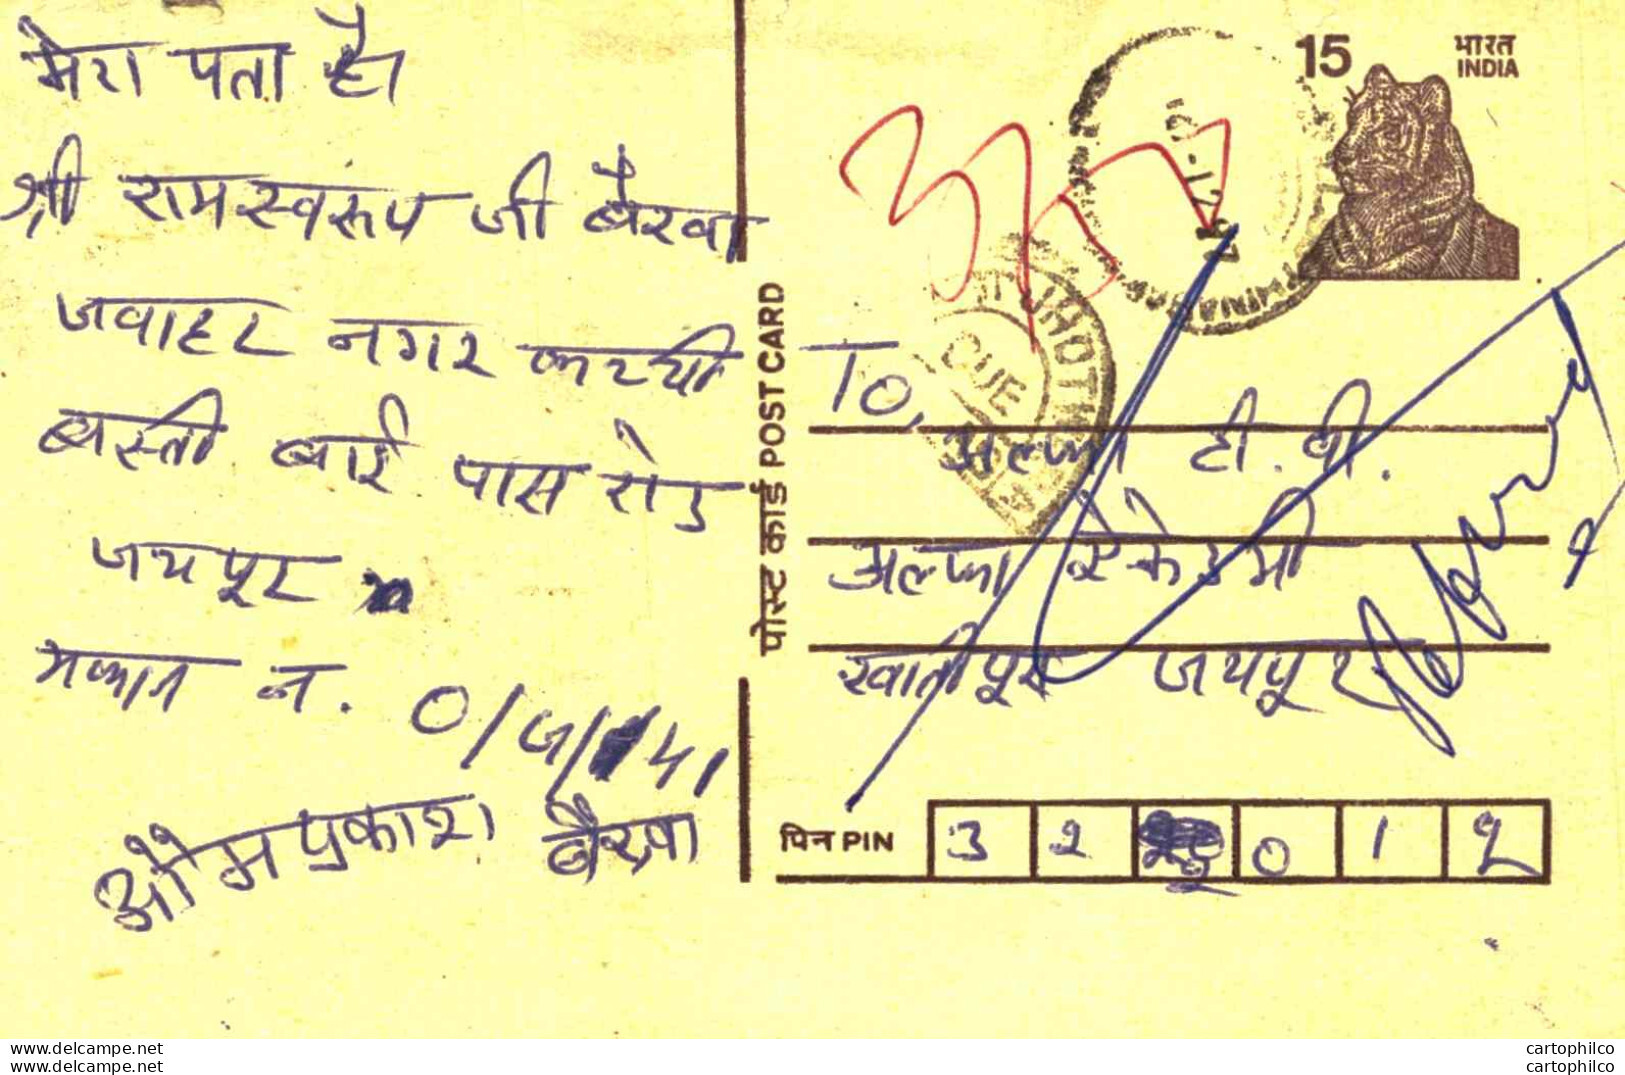 मेरा पता है।
श्री रामस्वरूप जी बैरवा
जवाहर नगर कच्ची
बस्ती बाई पास रोड
जयपूर
मकान न. 0/ज/41
ओमप्रकाश बैरवा
पोस्ट कार्ड POST CARD
15
भारत
INDIA
DUE
To,
अल्फा टी.वी.
अल्फा ऐकेडमी
खातीपूरा जयपूर
पिन PIN 3 2 0 1 2
cartophilco
cartophilco
cartophilco
cartophilco